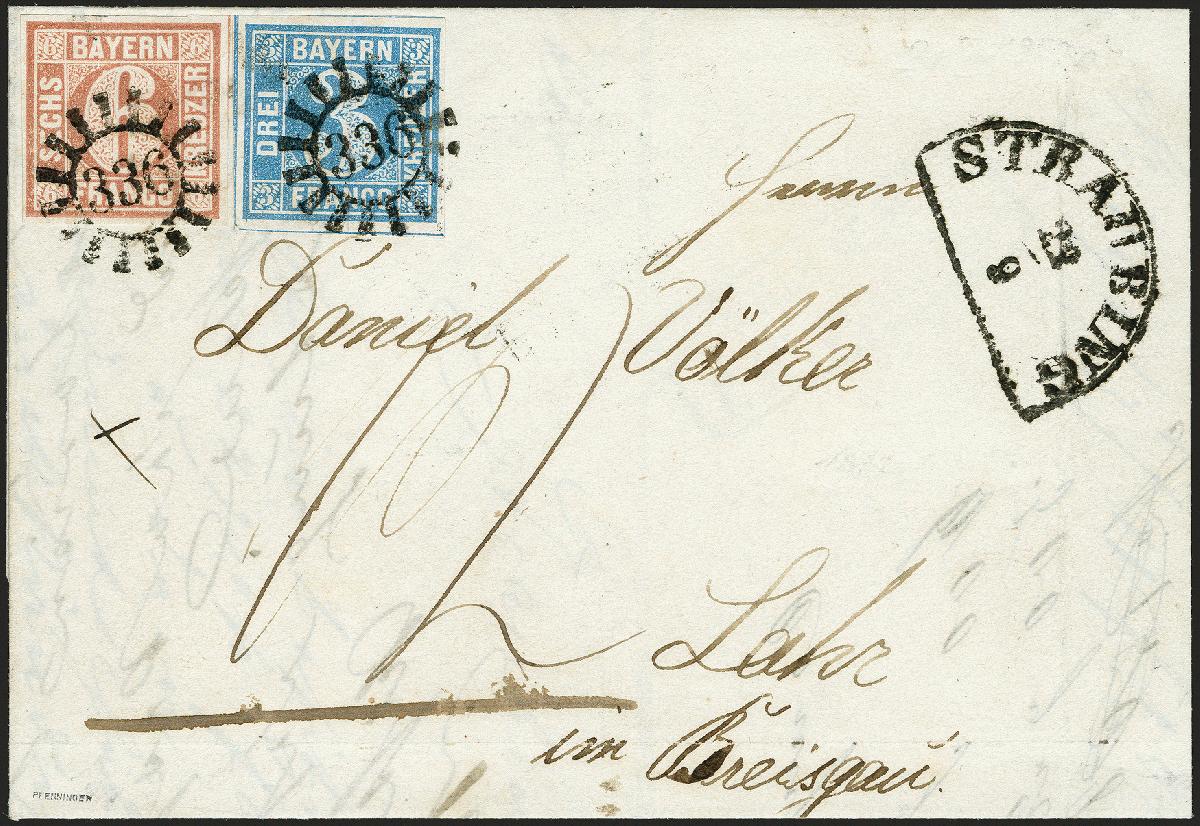 6 BAYERN 6
SECHS
6
KREUZER
6 FRANCO 6
336
3 BAYERN 3
DREI
3
KREUZER
3 FRANCO 3
336
STRAUBING
8
Herrn
Daniel Völker
Lahr
im Breisgau.
PFENNINGER